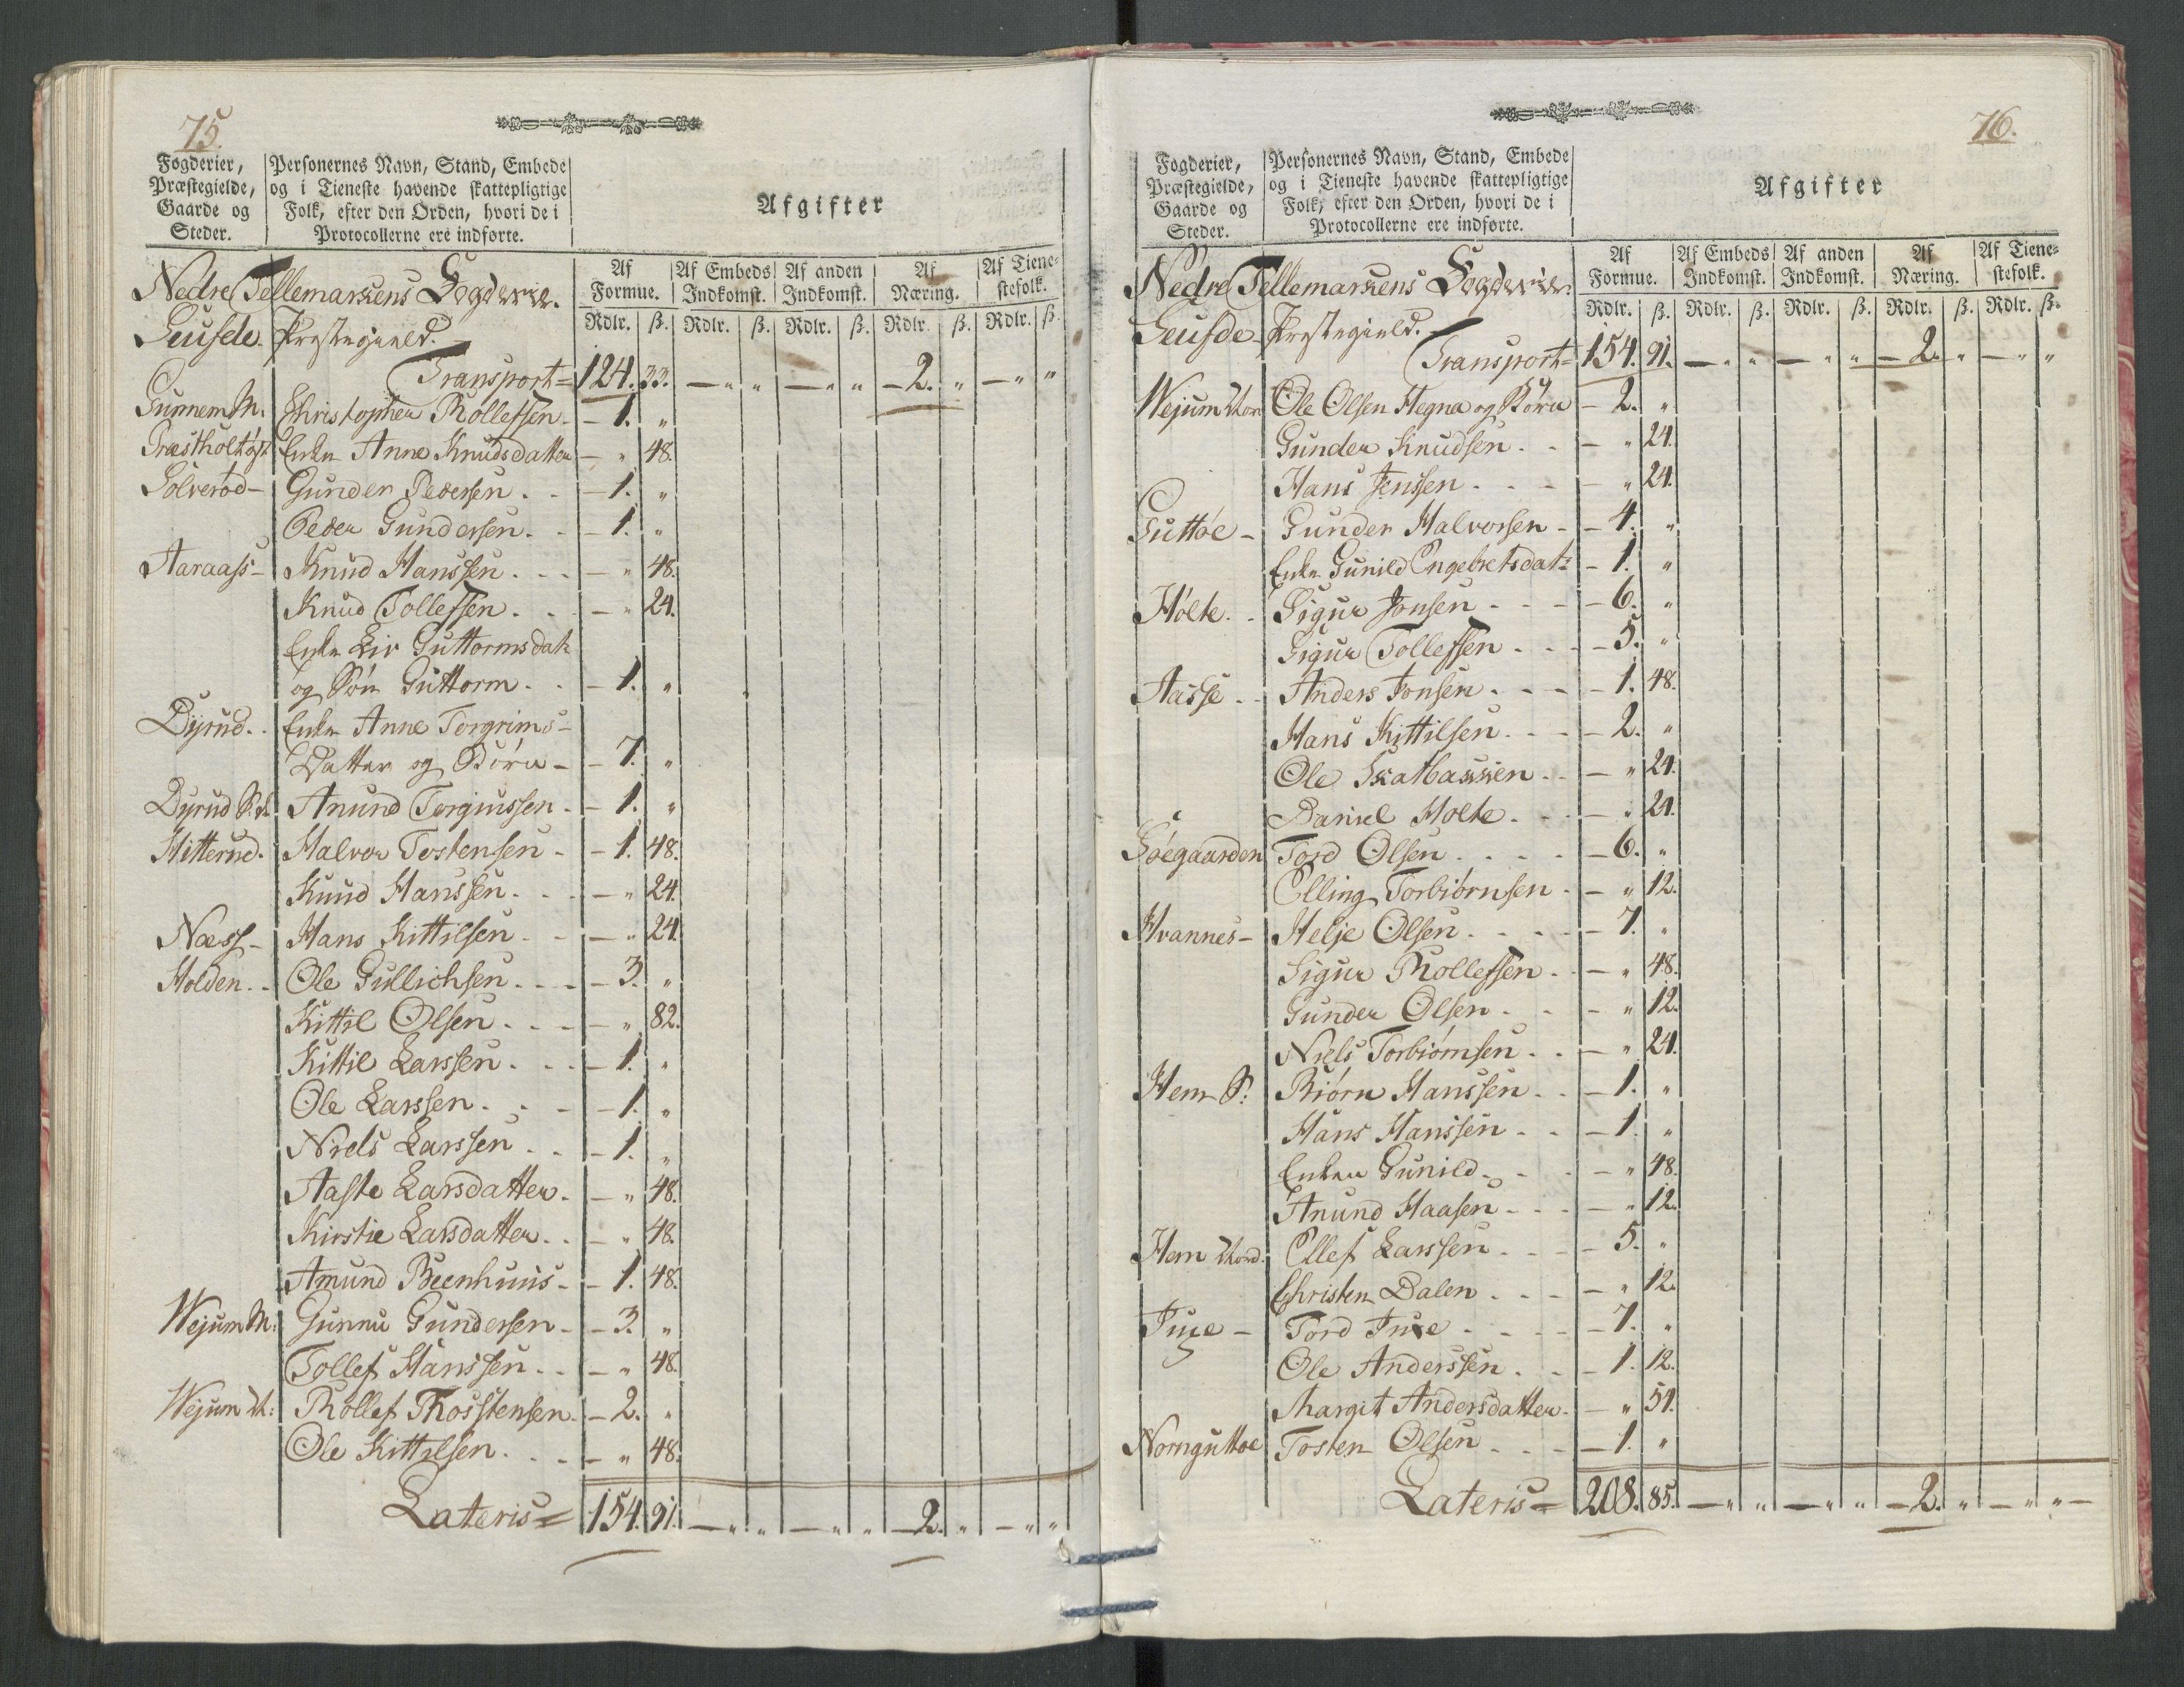 75.
Fogderier, Præstegielde, Gaarde og Steder.
Personernes Navn, Stand, Embede og i Tieneste havende skattepligtige Folk, efter den Orden, hvori de i Protocollerne ere indførte.
Afgifter
Af Formue. Af Embeds Indkomst. Af anden Indkomst. Af Næring. Af Tienestefolk.
Rdlr. ß. Rdlr. ß. Rdlr. ß. Rdlr. ß. Rdlr. ß.
Nedre Tellemarkens Fogderie.
Seufde Præstegield.
Transport = 124. 33. — " " — " " — 2. " — " "
Gunnem M. Christopher Rollefsen — 1. "
Græstholt øst Enke Anne Knudsdatter — " 48.
Sølverød — Gunder Pedersen — 1. "
Peder Gundersen — 1. "
Aaraas — Knud Hanssen — " 48.
Knud Tollefsen — " 24.
Enke Liv Guttormsdatr
og Søn Guttorm — 1. "
Dyrud Enke Anne Torgrims-
Datter og Børn — 7. "
Dyrud Anund Torgiussen — 1. "
Hitterud Halvor Tostensen — 1. 48.
Knud Hanssen — " 24.
Næss — Hans Kittilsen — " 24.
Holden Ole Gullichsen — 3. "
Kittil Olsen — " 82.
Kittil Larssen — 1. "
Ole Larssen — 1. "
Niels Larssen — 1. "
Aaste Larsdatter — " 48.
Kirstie Larsdatter — " 48.
Amund Beenhuus — 1. 48.
Wejum M: Gunnu Gundersen — 3. "
Tollef Hanssen — " 48.
Wejum N: Rollef Thosstensen — 2. "
Ole Kittilsen — " 48.
Lateris = 154. 91. — " " — " " — 2. " — " "
76.
Fogderier, Præstegielde, Gaarde og Steder.
Personernes Navn, Stand, Embede og i Tieneste havende skattepligtige Folk, efter den Orden, hvori de i Protocollerne ere indførte.
Afgifter
Af Formue. Af Embeds Indkomst. Af anden Indkomst. Af Næring. Af Tienestefolk.
Rdlr. ß. Rdlr. ß. Rdlr. ß. Rdlr. ß. Rdlr. ß.
Nedre Tellemarkens Fogderie.
Seufde Præstegield.
Transport = 154. 91. — " " — " " — 2. " — " "
Wejum Nor Ole Olsen Hegna og Børn — 2. "
Gunder Knudsen — " 24.
Hans Jenssen — " 24.
Guttøe — Gunder Halvorsen — 4. "
Enke Gunild Engebretsdatr — 1. "
Holte Sigur Jonsen — 6. "
Sigur Tollefsen — 5. "
Aasse Anders Jonsen — 1. 48.
Hans Kittilsen — 2. "
Ole Skatbakken — " 24.
Daniel Holte — " 24.
Søegaarden Tord Olsen — 6. "
Elling Torbiørnsen — " 12.
Hvannes — Helje Olsen — 7. "
Sigur Rollefsen — " 48.
Gunder Olsen — " 12.
Niels Torbiørnsen — " 24.
Hem S: Biørn Hanssen — 1. "
Hans Hanssen — 1. "
Enken Gunild — " 48.
Anund Haasen — " 12.
Hem Nord. Ellef Larssen — 5. "
Christen Dalen — " 12.
Tord — 7. "
Ole Anderssen — 1. 12.
Margit Andersdatter — " 54.
Nornguttoe Tosten Olsen — 1. "
Lateris = 208. 85. — " " — " " — 2. " — " " —